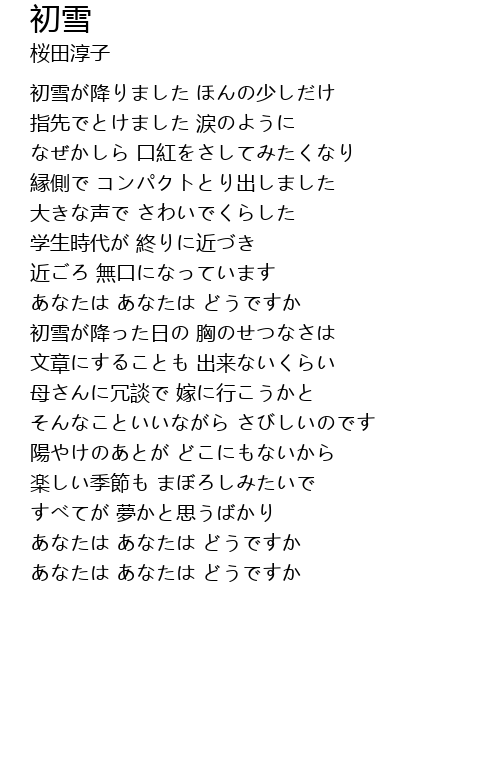 初雪
桜田淳子
初雪が降りました ほんの少しだけ
指先でとけました 涙のように
なぜかしら 口紅をさしてみたくなり
縁側で コンパクトとり出しました
大きな声で さわいでくらした
学生時代が 終りに近づき
近ごろ 無口になっています
あなたは あなたは どうですか
初雪が降った日の 胸のせつなさは
文章にすることも 出来ないくらい
母さんに冗談で 嫁に行こうかと
そんなこといいながら さびしいのです
陽やけのあとが どこにもないから
楽しい季節も まぼろしみたいで
すべてが 夢かと思うばかり
あなたは あなたは どうですか
あなたは あなたは どうですか